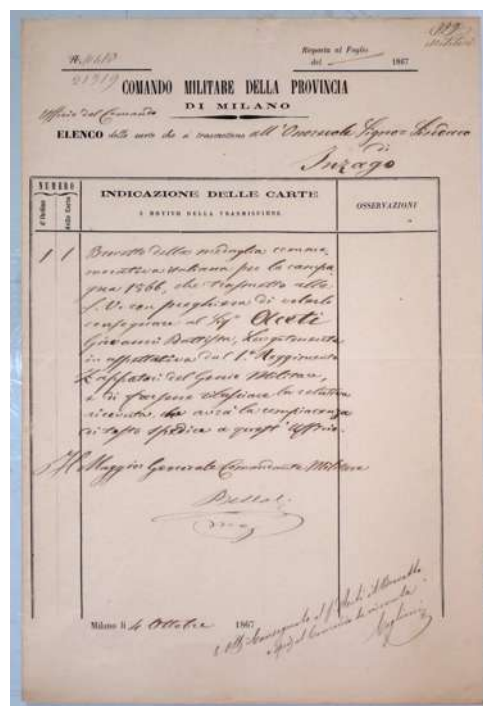 Risposta al Foglio
N.
del 1867
21919
COMANDO MILITARE DELLA PROVINCIA
DI MILANO
Ufficio del Comando
ELENCO delle carte che si trasmettono all'Onorevole Signor Sindaco
di
Inzago
NUMERO
d'Ordine
delle Carte
INDICAZIONE DELLE CARTE
E MOTIVO DELLA TRASMISSIONE
OSSERVAZIONI
1 1 Brevetto della medaglia comme-
morativa italiana per la campa-
gna 1866, che trasmetto alla
S. V. con preghiera di volerlo
consegnare al Sig.
Giovanni Battista, Luogotenente
in aspettativa dal 1° Reggimento
Zappatori del Genio Militare,
e di farsene rilasciare la relativa
ricevuta che avrà la compiacenza
di tosto spedire a quest'Ufficio.
Il Maggior Generale Comandante Militare
Milano li 4 Ottobre 1867
Consegnato al il Brevetto